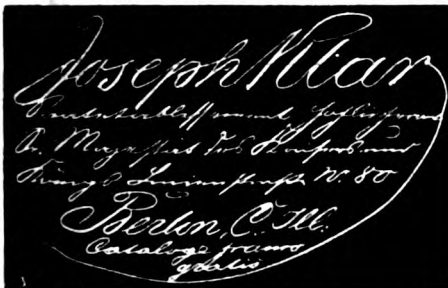 Joseph Klar
Sr. Majestät des Kaisers und
Königs Linienstraße No. 80
Berlin, C.
Cataloge franco
gratis